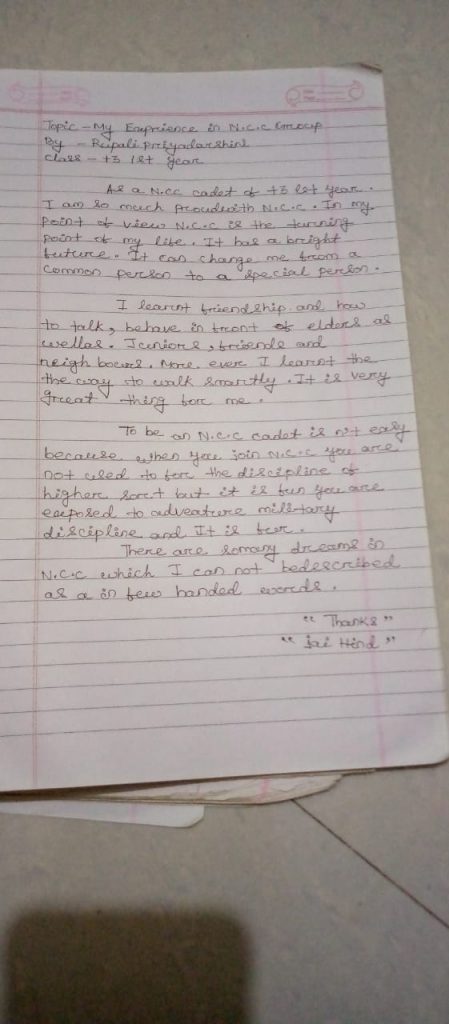 Topic - My Exprience in N.C.C Group
By - Rupali Priyadarshini
Class - +3 1st year
As a N.CC cadet of +3 1st year.
I am so much proudwith N.C.C. In my
point of view N.C.C is the turning
point of my life. It has a bright
future. It can change me from a
common person to a special person.
I learnt friendship and how
to talk, behave in front of elders as
wellas. Juniors, friends and
neigh bours. More even I learnt the
the way to walk smartly. It is very
great thing for me.
To be an N.C.C cadet is n't easy
because when you join N.C.C you are
not used to for the discipline of
higher sort but it is fun you are
exposed to adveature military
discipline and It is fur.
There are somany dreams in
N.C.C which I can not bedescribed
as a in few handed words.
"Thanks"
"Jai Hind"